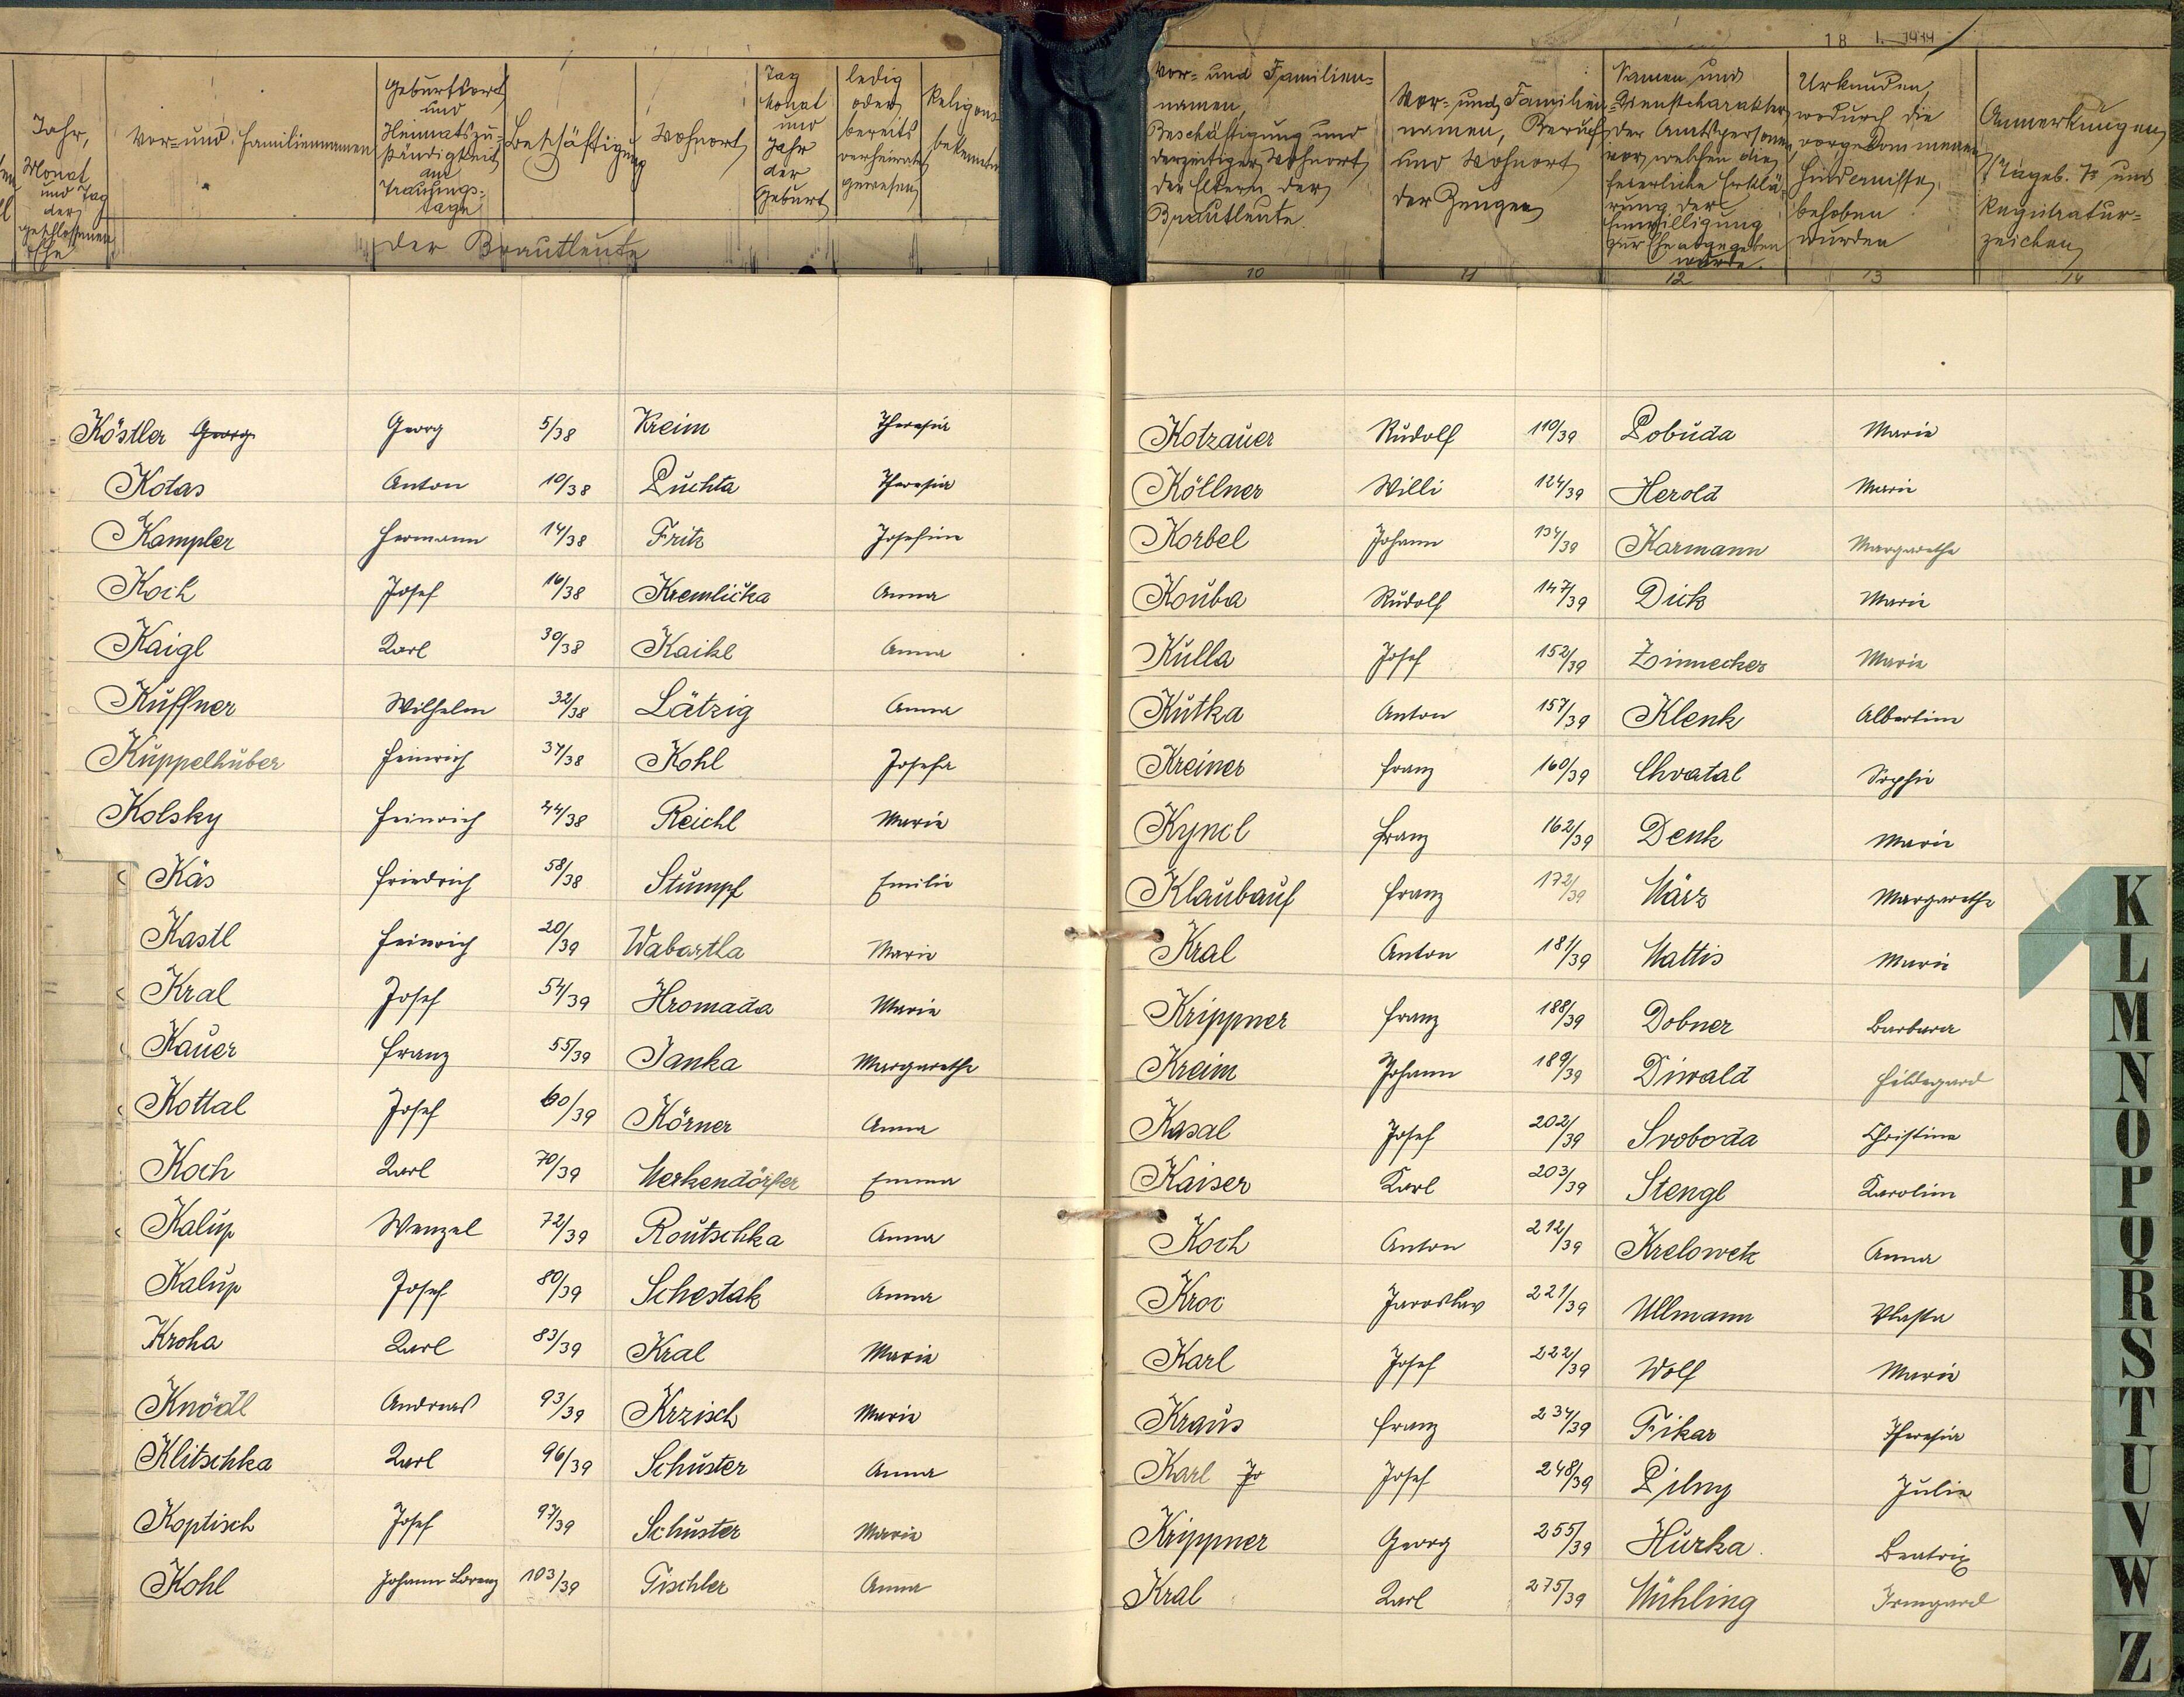 Jahr,
Monat
und Tag
der
geschlossenen
Ehe
Vor- und Familiennamen
Geburtsort
und
Heimatszu-
ständigkeit
am
Trauungs-
tage
Beschäftigung
Wohnort
Tag
Monat
und
Jahr
der
Geburt
ledig
oder
bereits
verheiratet
gewesen
Religions
bekenntn
der Brautleute
18 I. 1939
Vor- und Familien-
namen,
Beschäftigung und
derzeitiger Wohnort
der Eltern der
Brautleute.
Vor- und Familien-
namen, Beruf
und Wohnort
der Zeugen
Namen und
Dienstcharakter
der Amtspersonen
vor welchen die
feierliche Erklä-
rung der
Einwilligung
zur Ehe abgegeben
wurde.
Urkunden,
wodurch die
vorgekommenen
Hindernisse
behoben
wurden
Anmerkungen
Tageb. Z. und
Registratur-
zeichen
10 11 12 13 14
Köstler Georg Georg 5/38 Kreim Theresia
Kotas Anton 10/38 Puchta Theresia
Kampler Hermann 14/38 Fritz Josefine
Koch Josef 16/38 Kremlička Anna
Kaigl Karl 30/38 Kaikl Anna
Kuffner Wilhelm 32/38 Lätzig Anna
Kuppelhuber Heinrich 37/38 Kohl Josefa
Kolsky Heinrich 44/38 Reichl Marie
Käs Friedrich 58/38 Stumpf Emilie
Kastl Heinrich 20/39 Wabartla Marie
Kral Josef 54/39 Hromada Marie
Kauer Franz 55/39 Janka Margarethe
Kottal Josef 60/39 Körner Anna
Koch Karl 70/39 Merkendörfer Emma
Kalup Wenzel 72/39 Routschka Anna
Kalup Josef 80/39 Schestak Anna
Kroha Karl 83/39 Kral Marie
Knödl Andreas 93/39 Krzisch Marie
Klitschka Karl 96/39 Schuster Anna
Koptisch Josef 97/39 Schuster Marie
Kohl Johann Lorenz 103/39 Tischler Anna
Kotzauer Rudolf 110/39 Pobuda Marie
Köllner Willi 124/39 Herold Marie
Korbel Johann 134/39 Karmann Margarethe
Kouba Rudolf 147/39 Dick Marie
Kulla Josef 152/39 Zinnecker Marie
Kutka Anton 157/39 Klenk Albertine
Kreiner Franz 160/39 Chvatal Sophie
Kyncl Franz 162/39 Denk Marie
Klaubauf Franz 172/39 März Margarethe
Kral Anton 181/39 Mattis Marie
Krippner Franz 188/39 Dobner Barbara
Kreim Johann 189/39 Diwald Hildegard
Kasal Josef 202/39 Svoboda Christine
Kaiser Karl 203/39 Stengl Karoline
Koch Anton 212/39 Krelowetz Anna
Kroc Jaroslav 221/39 Ullmann Vlasta
Karl Josef 222/39 Wolf Marie
Kraus Franz 234/39 Fikar Theresia
Karl Jo Josef 248/39 Pilny Julie
Krippner Georg 255/39 Hurka. Beatrix
Kral Karl 275/39 Mühling Irmgard
K
L
M
N
O
P
Q
R
S
T
U
V
W
Z